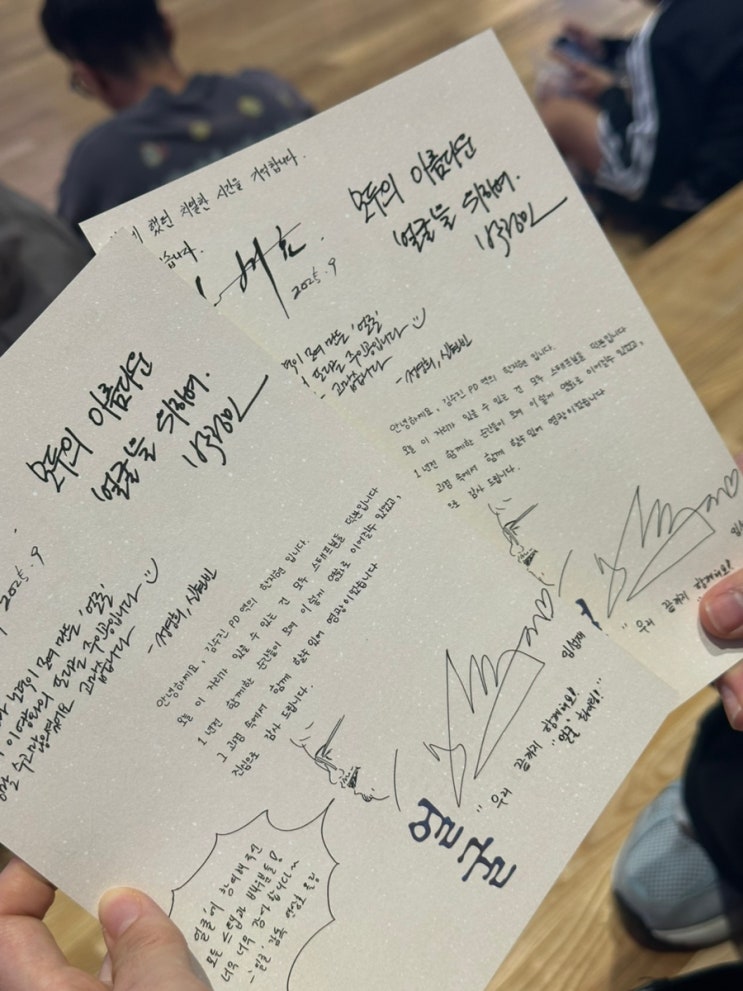 했던 치열한 시간을 기억합니다.
2025. 9
모두의 아름다운
'얼굴'을 위하여.
박정민
모여 만든 '얼굴'
주인공입니다
고맙습니다
- 서영희, 신현빈
안녕하세요, 김수진 PD 역의 한지현 입니다.
오늘 이 자리가 있을 수 있는 건 모두 스태프분들 덕분입니다
1년전 함께한 순간들이 모여 이렇게 영화로 이어질수 있었고,
그 과정 속에서 함께 할수 있어 영광이었습니다
으로 감사 드립니다.
"우리 끝까지 함께해요!
모두의 아름다운
'얼굴'을 위하여.
박정민
2025. 9
모여 만든 '얼굴'
이 영화의 주인공입니다
고맙습니다
- 서영희, 신현빈
안녕하세요, 김수진 PD 역의 한지현 입니다.
오늘 이 자리가 있을 수 있는 건 모두 스태프분들 덕분입니다
1년전 함께한 순간들이 모여 이렇게 영화로 이어질수 있었고,
그 과정 속에서 함께 할수 있어 영광이었습니다
진심으로 감사 드립니다.
임성재
"우리 끝까지 함께해요!
"얼굴" 화이팅!"
얼굴
얼굴에 참여해주신
모든 스탭과 배우분들!
너무 너무 감사합니다~
- '얼굴' 감독 연상호 올림